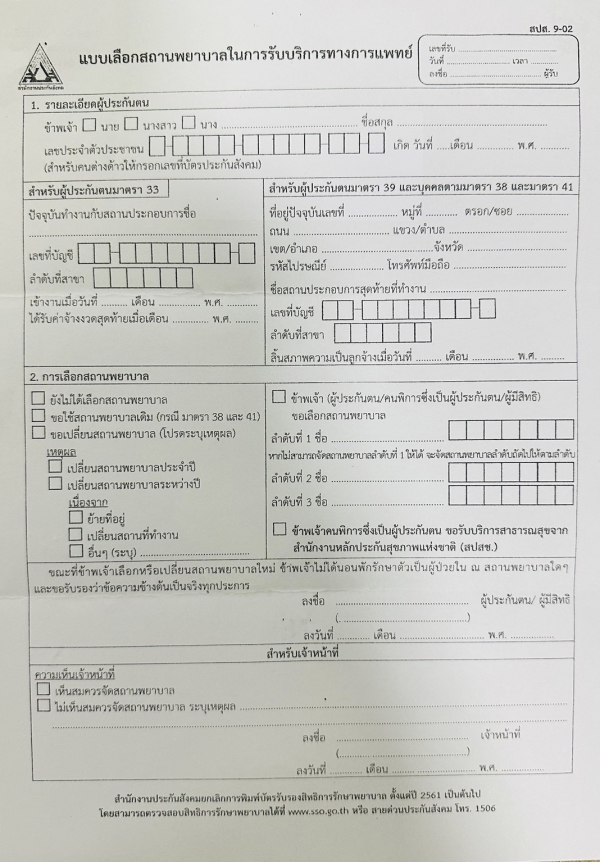 สปส. 9-02
สำนักงานประกันสังคม
แบบเลือกสถานพยาบาลในการรับบริการทางการแพทย์
เลขที่รับ ................................
วันที่ ........................ เวลา ............
ลงชื่อ ................................ ผู้รับ
1. รายละเอียดผู้ประกันตน
ข้าพเจ้า ☐ นาย ☐ นางสาว ☐ นาง ................................ ชื่อสกุล ................................
เลขประจำตัวประชาชน เกิด วันที่ .....เดือน ............ พ.ศ. ............
(สำหรับคนต่างด้าวให้กรอกเลขที่บัตรประกันสังคม)
สำหรับผู้ประกันตนมาตรา 33
ปัจจุบันทำงานกับสถานประกอบการชื่อ
................................................
เลขที่บัญชี
ลำดับที่สาขา
เข้างานเมื่อวันที่ .......... เดือน ............ พ.ศ. ..........
ได้รับค่าจ้างงวดสุดท้ายเมื่อเดือน ............ พ.ศ. ..........
สำหรับผู้ประกันตนมาตรา 39 และบุคคลตามมาตรา 38 และมาตรา 41
ที่อยู่ปัจจุบันเลขที่ ............ หมู่ที่ .......... ตรอก/ซอย ................
ถนน ........................ แขวง/ตำบล ........................
เขต/อำเภอ ................................จังหวัด ........................
รหัสไปรษณีย์ ................ โทรศัพท์มือถือ ........................
ชื่อสถานประกอบการสุดท้ายที่ทำงาน ................................
เลขที่บัญชี
ลำดับที่สาขา
สิ้นสภาพความเป็นลูกจ้างเมื่อวันที่ .......... เดือน ............ พ.ศ. ..........
2. การเลือกสถานพยาบาล
☐ ยังไม่ได้เลือกสถานพยาบาล
☐ ขอใช้สถานพยาบาลเดิม (กรณี มาตรา 38 และ 41)
☐ ขอเปลี่ยนสถานพยาบาล (โปรดระบุเหตุผล)
เหตุผล
☐ เปลี่ยนสถานพยาบาลประจำปี
☐ เปลี่ยนสถานพยาบาลระหว่างปี
เนื่องจาก
☐ ย้ายที่อยู่
☐ เปลี่ยนสถานที่ทำงาน
☐ อื่นๆ (ระบุ) ................................
☐ ข้าพเจ้า (ผู้ประกันตน/คนพิการซึ่งเป็นผู้ประกันตน/ผู้มีสิทธิ)
ขอเลือกสถานพยาบาล
ลำดับที่ 1 ชื่อ ................................
หากไม่สามารถจัดสถานพยาบาลลำดับที่ 1 ให้ได้ จะจัดสถานพยาบาลลำดับถัดไปให้ตามลำดับ
ลำดับที่ 2 ชื่อ ................................
ลำดับที่ 3 ชื่อ ................................
☐ ข้าพเจ้าคนพิการซึ่งเป็นผู้ประกันตน ขอรับบริการสาธารณสุขจาก
สำนักงานหลักประกันสุขภาพแห่งชาติ (สปสช.)
ขณะที่ข้าพเจ้าเลือกหรือเปลี่ยนสถานพยาบาลใหม่ ข้าพเจ้าไม่ได้นอนพักรักษาตัวเป็นผู้ป่วยใน ณ สถานพยาบาลใดๆ
และขอรับรองว่าข้อความข้างต้นเป็นจริงทุกประการ
ลงชื่อ ................................ ผู้ประกันตน/ ผู้มีสิทธิ
(................................)
ลงวันที่ .......... เดือน ........................ พ.ศ. ............
สำหรับเจ้าหน้าที่
ความเห็นเจ้าหน้าที่
☐ เห็นสมควรจัดสถานพยาบาล
☐ ไม่เห็นสมควรจัดสถานพยาบาล ระบุเหตุผล ................................
................................................
ลงชื่อ ................................ เจ้าหน้าที่
(................................)
ลงวันที่ .......... เดือน ........................ พ.ศ. ............
สำนักงานประกันสังคมยกเลิกการพิมพ์บัตรรับรองสิทธิการรักษาพยาบาล ตั้งแต่ปี 2561 เป็นต้นไป
โดยสามารถตรวจสอบสิทธิการรักษาพยาบาลได้ที่ www.sso.go.th หรือ สายด่วนประกันสังคม โทร. 1506